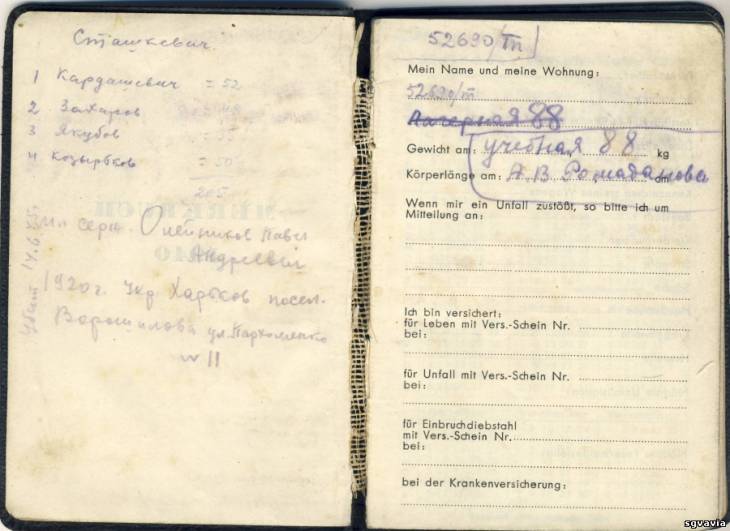 Сташкевич.
1 Кардашевич = 52
2 Захаров
3 Якубов
4 Козырьков = 50
205
Мл. серж. Олейников Павел
Андреевич
1920 г. Укр. Харьков посел.
Ворошилова ул. Пархоменко
№ 11
Убит 14.6.45.
52690/Тп
Mein Name und meine Wohnung:
52690/т
Лагерная 88
Gewicht am: учебная 88 kg
Körperlänge am: А.В. Ромаданова cm
Wenn mir ein Unfall zustößt, so bitte ich um
Mitteilung an:
Ich bin versichert:
für Leben mit Vers.-Schein Nr.
bei:
für Unfall mit Vers.-Schein Nr.
bei:
für Einbruchdiebstahl
mit Vers.-Schein Nr.
bei:
bei der Krankenversicherung:
sgvavia